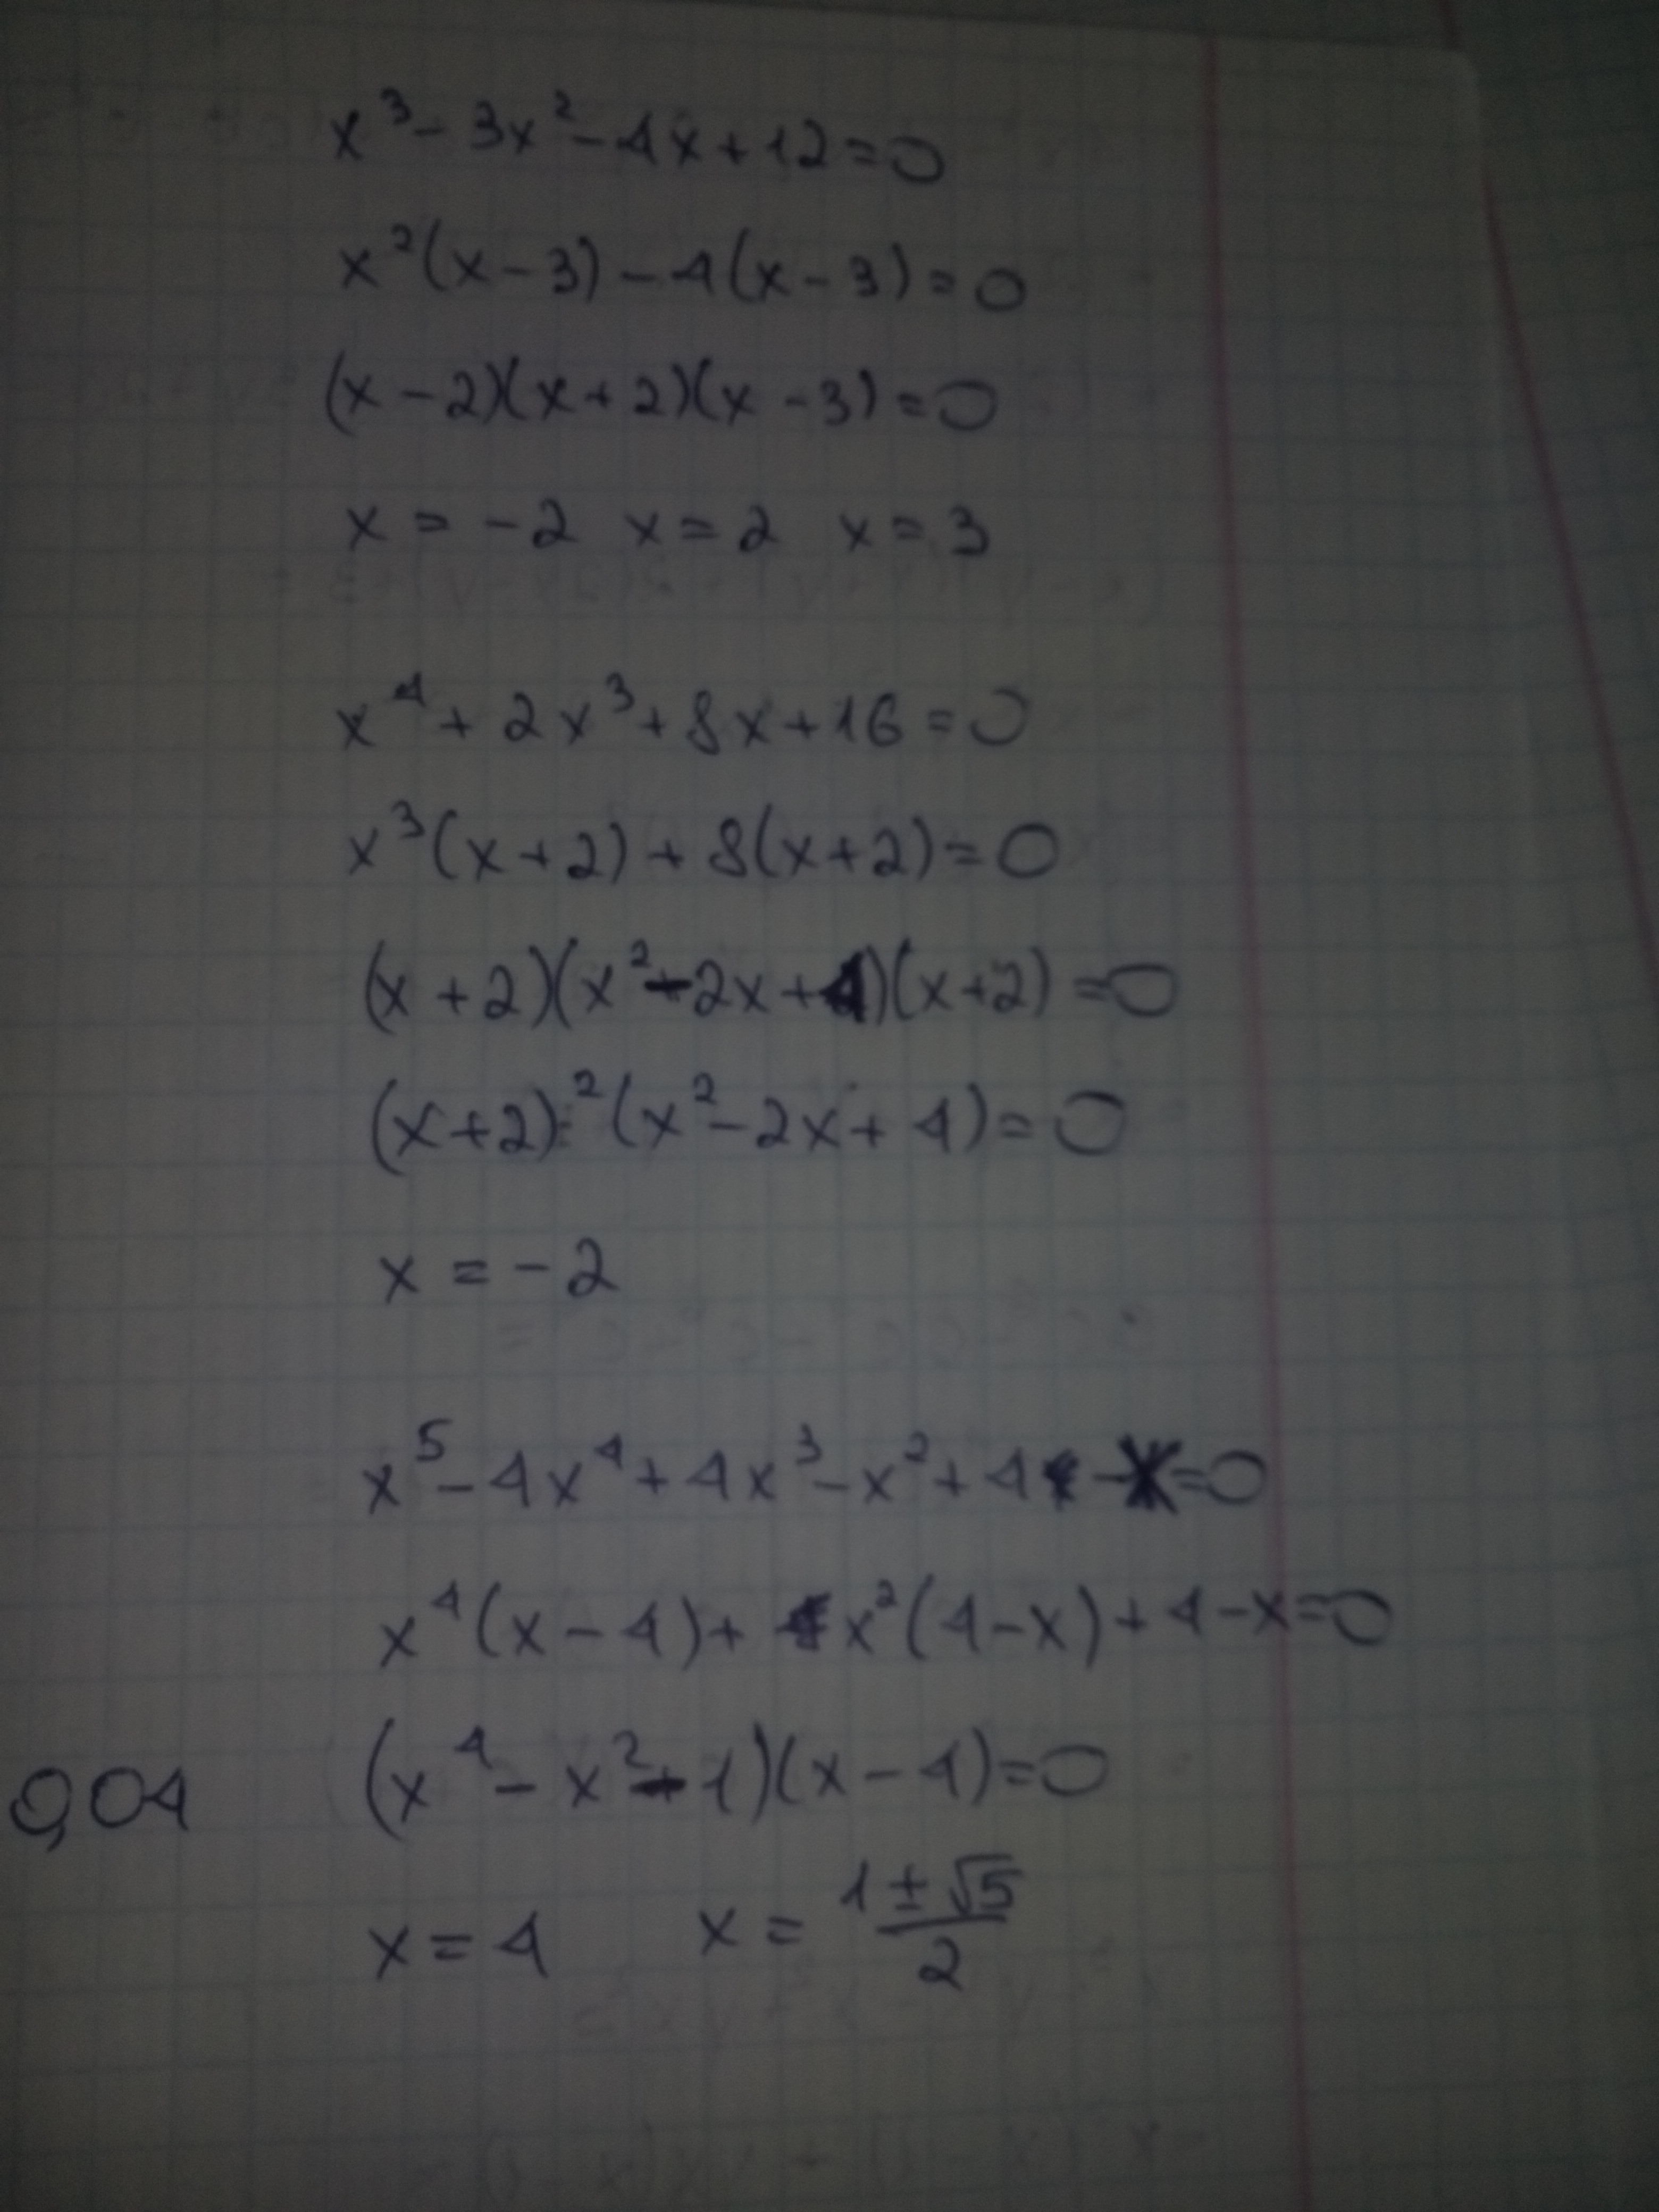 x³ - 3x² - 4x + 12 = 0
x²(x - 3) - 4(x - 3) = 0
(x - 2)(x + 2)(x - 3) = 0
x = -2 x = 2 x = 3
x⁴ + 2x³ + 8x + 16 = 0
x³(x + 2) + 8(x + 2) = 0
(x + 2)(x² - 2x + 4)(x + 2) = 0
(x + 2)²(x² - 2x + 4) = 0
x = -2
x⁵ - 4x⁴ + 4x³ - x² + 4 - x = 0
x⁴(x - 4) + x²(4 - x) + 4 - x = 0
0,04 (x⁴ - x² - 1)(x - 4) = 0
x = 4 x = (1 ± √5)/2